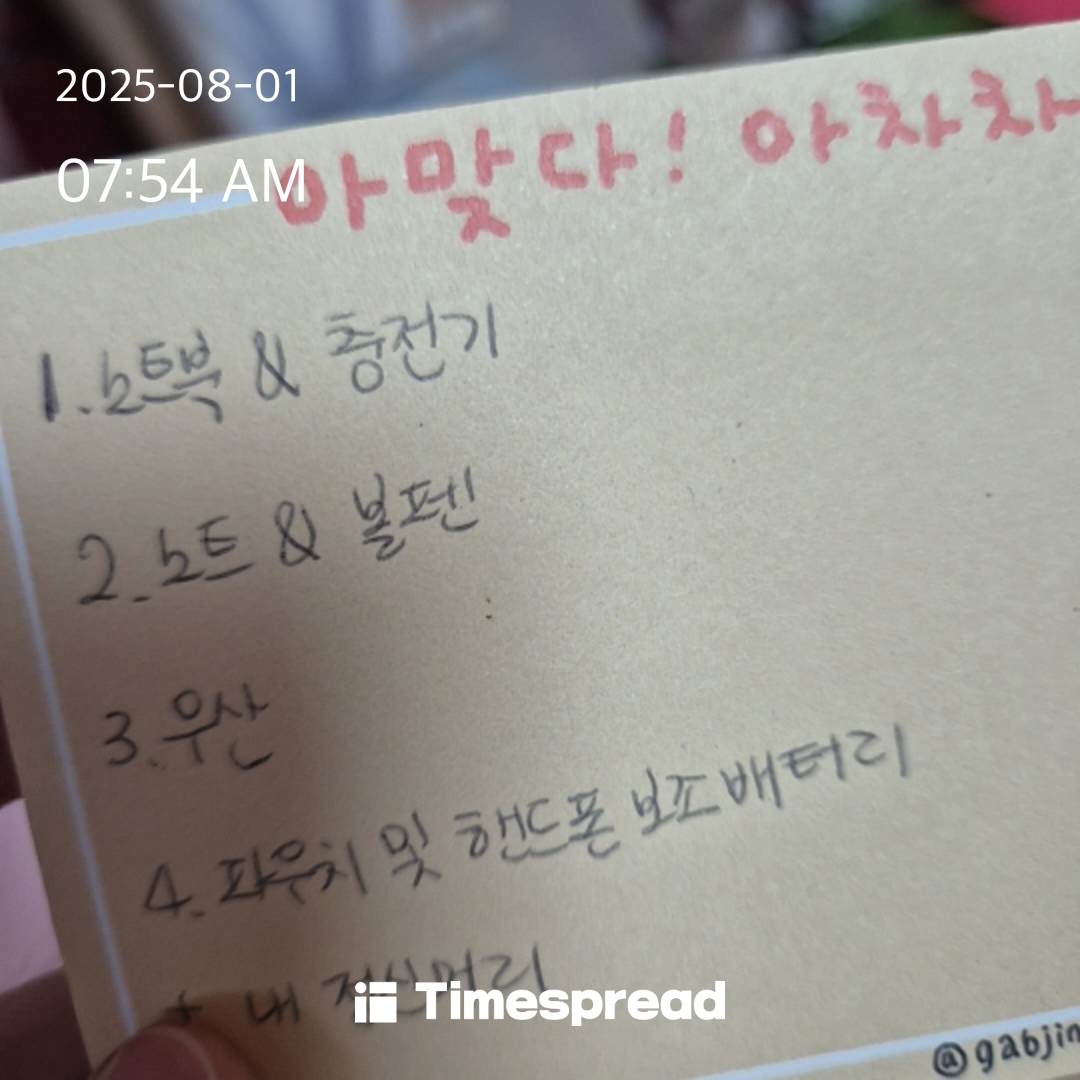 2025-08-01
07:54 AM
아 맞다! 아차차
1. 노트북 & 충전기
2. 노트 & 볼펜
3. 우산
4. 파우치 및 핸드폰 보조배터리
+ 내 정신머리
Timespread
@gabjin